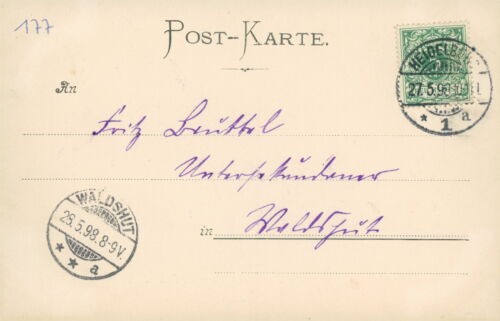 177
POST-KARTE.
HEIDELBERG
27.5.98
* 1 a
An
Fritz Bruttel
Untersekundaner
in Waldshut
WALDSHUT
28.5.98.8-9V.
* * a